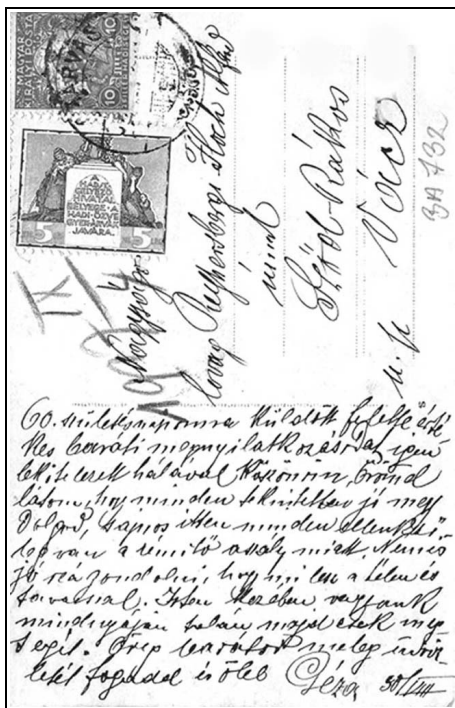 MAGYAR KIRÁLYI POSTA
10 10
A
HIVATAL
BÉLYEGE A
HADI-ÖZVE
JAVÁRA
5 5
Nagyságos
lovag Koch
úrnak
Sződ-Rákos
u. p. Vácz
3A 732
IX
60. születésnapomra küldött felette érté
kes baráti megnyilatkozásodat igen
lekötelezett hálával köszönöm, 
látom, hogy minden tekintetben jó megy
dolgod, sajnos itten minden ellenkező
leg van a rémitő aszály miatt. Nem is
jó rá gondolni, hogy mi lesz a télen és
tavasszal. Isten kezében vagyunk
mindnyájan talán majd meg
segit. Öreg barátod meleg üdvöz
letét fogadd és ölel Géza